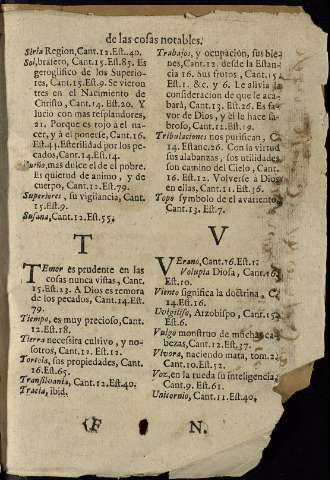 de las cosas notables.
Siria Region, Cant. 12. Est. 40.
Sol, brasero, Cant. 15. Est. 85. Es
geroglifico de los Superio-
res, Cant. 15. Est. 9. Se vieron
tres en el Nacimiento de
Christo, Cant. 14. Est. 20. Y
lucio con mas resplandores,
21. Porque es rojo à el na-
cer, y à el ponerse, Cant. 16.
Est. 41. Esterilidad por los pe-
cados, Cant. 14. Est. 14.
mas dulce el de el pobre.
Es quietud de animo, y de
cuerpo, Cant. 12. Est. 79.
Superiores, su vigilancia, Cant.
15. Est. 9.
Susana, Cant. 12. Est. 55.
T
TEmor es prudente en las
cosas nunca vistas, Cant.
15. Est. 23. A Dios es remora
de los pecados, Cant. 14. Est.
79.
Tiempo, es muy precioso, Cant.
12. Est. 18.
Tierra necessita cultivo, y no-
sotros, Cant. 12. Est. 12.
Tortola, sus propiedades, Cant.
16. Est. 65.
Transilvania, Cant. 12. Est. 40.
Tracia, ibid.
Trabajos, y ocupacion, sus bie-
nes, Cant. 12. desde la Estan-
cia 16. Sus frutos, Cant. 15
Est. 1. &c. y 6. Le alivia la
consideracion de que le aca-
barà, Cant. 13. Est. 26. Es fa-
vor de Dios, y el le hace sa-
broso, Cant. 12. Est. 19.
Tribulaciones nos purifican, C.
14. Estanc. 26. Con la virtud
sus alabanzas, sus utilidades
son camino del Cielo, Cant.
16. Est. 12. Volverse à Dios
en ellas, Cant. 11. Est. 36.
Topo symbolo de el avariento
Cant. 13. Est. 7.
V
VErano, Cant. 16. Est. 1.
Volupia Diosa, Cant. 16.
Est. 10.
Viento significa la doctrina, C.
14. Est. 16.
Votgiliso, Arzobispo, Cant. 15.
Est. 6.
Vulgo monstruo de muchas ca-
bezas, Cant. 12. Est. 37.
Vivora, naciendo mata, tom. 2.
Cant. 10. Est. 52.
Voz, en la rueda su inteligencia,
Cant. 9. Est. 61.
Unicornio, Cant. 11. Est. 40.
F N.